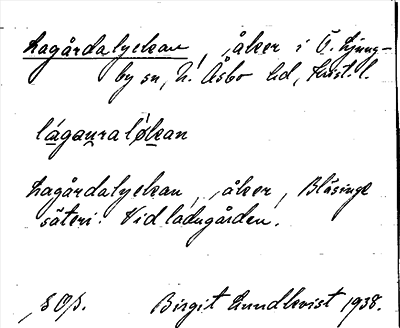 Lagårdalyckan, åker i Ö. Ljung-
by sn, N. Åsbo hd, Krist. l.
lágauraløkan
Lagårdalyckan, åker, Bläsinge
säteri. Vid ladugården.
Birgit Lundkvist 1938.